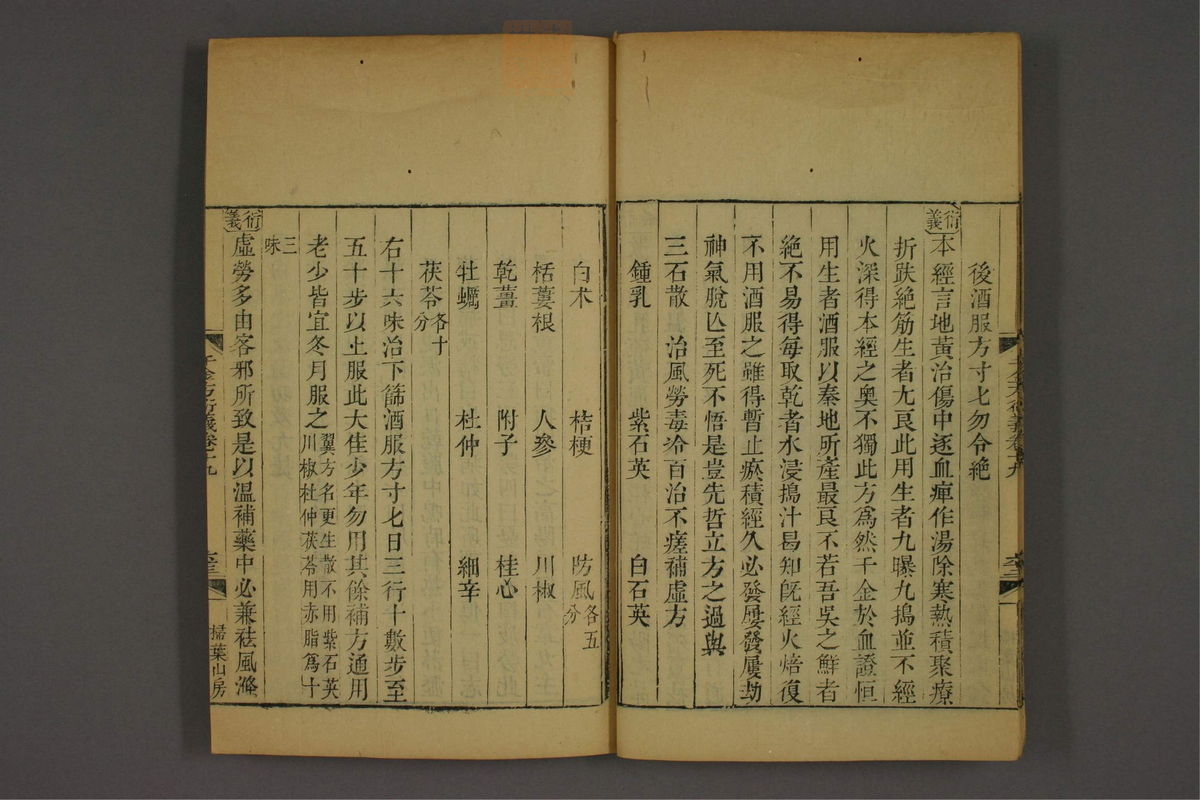 後酒服方寸匕勿令絶
衍義
本經言地黃治傷中逐血痺作湯除寒熱積聚療
折跌絶筋生者尢良此用生者九曝九搗並不經
火深得本經之奧不獨此方爲然千金於血證恒
用生者酒服以秦地所產最良不若吾吳之鮮者
絶不易得每取乾者水浸搗汁曷知旣經火焙復
不用酒服之雖得暫止瘀積經久必發屢發屢劫
神氣脫亾至死不悟是豈先哲立方之過與
三石散 治風勞毒冷百治不瘥補虛方
鍾乳 紫石英 白石英
白术 桔梗 防風各五分
栝蔞根 人參 川椒
乾薑 附子 桂心
牡蠣 杜仲 細辛
茯苓各十分
右十六味治下篩酒服方寸匕日三行十數步至
五十步以上服此大佳少年勿用其餘補方通用
老少皆宜冬月服之翼方名更生散不用紫石英川椒杜仲茯苓用赤脂爲十
三味
衍義
虛勞多由客邪所致是以溫補藥中必兼袪風滌
千金方衍義卷十九
掃葉山房